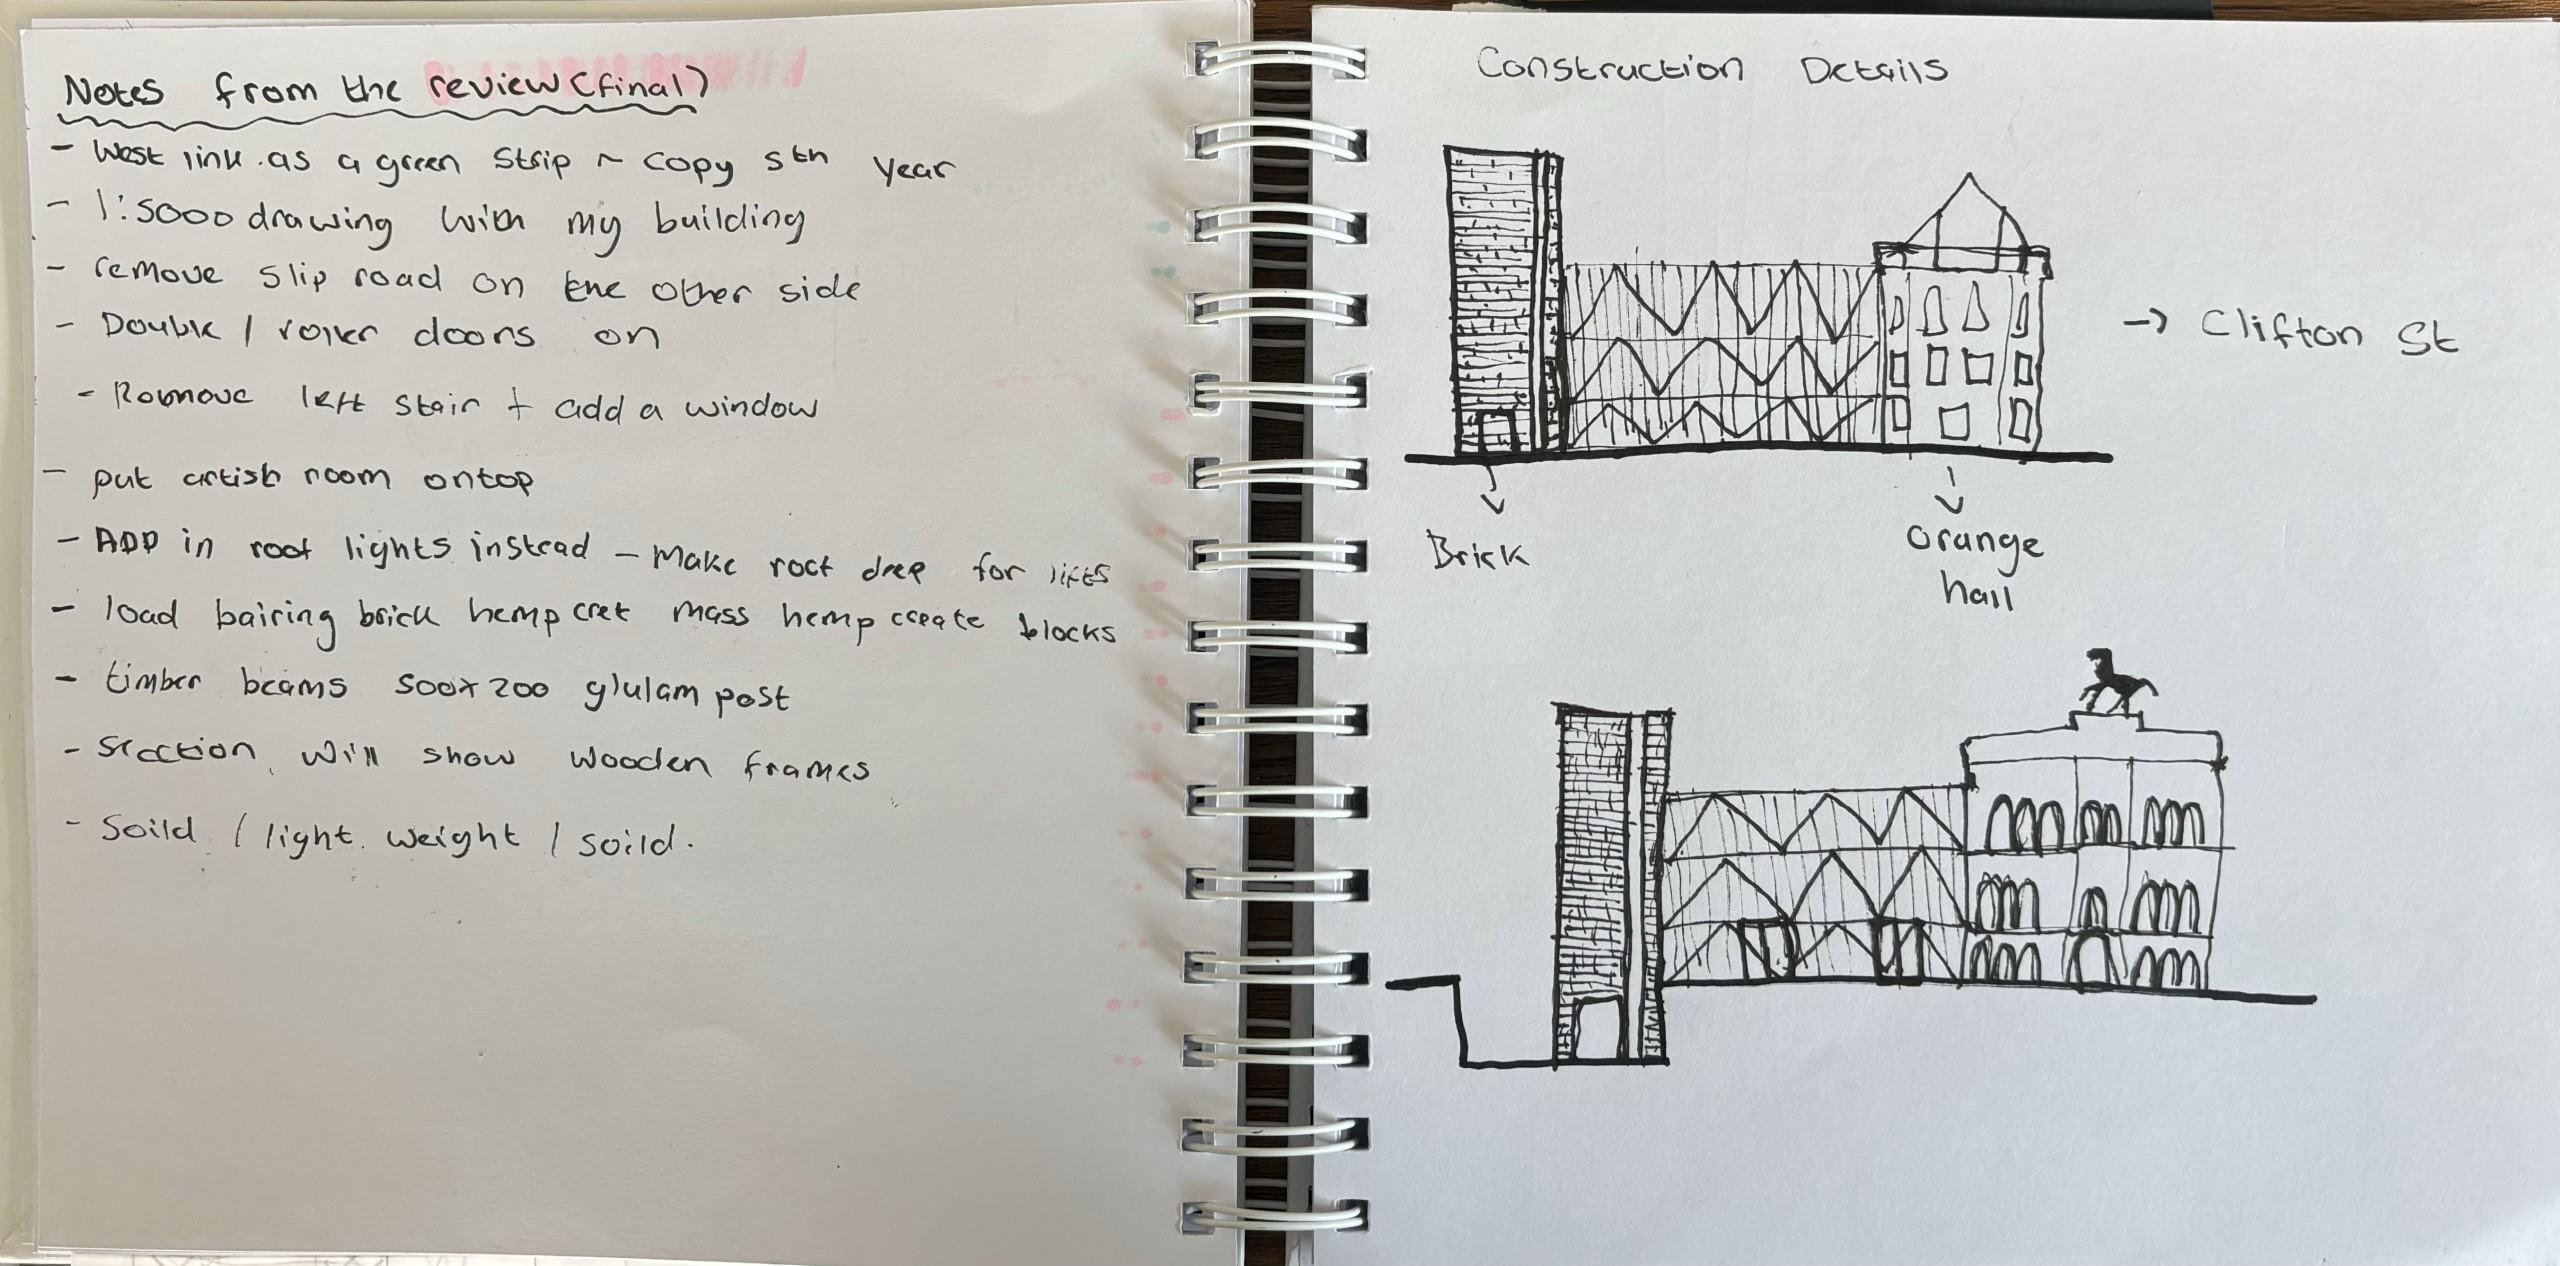 Notes from the review (final)
- West link as a green strip ~ copy 5th year
- 1:5000 drawing with my building
- remove slip road on the other side
- Double / roller doors on
- Romove left stair + add a window
- put artist room ontop
- ADD in roof lights instead - Make roof deep for lifts
- load bairing brick hemp cret mass hemp create blocks
- timber beams 500x200 glulam post
- Section will show wooden frames
- Soild / light weight / soild.
Construction Details
→ Clifton St
Brick
orange
hall